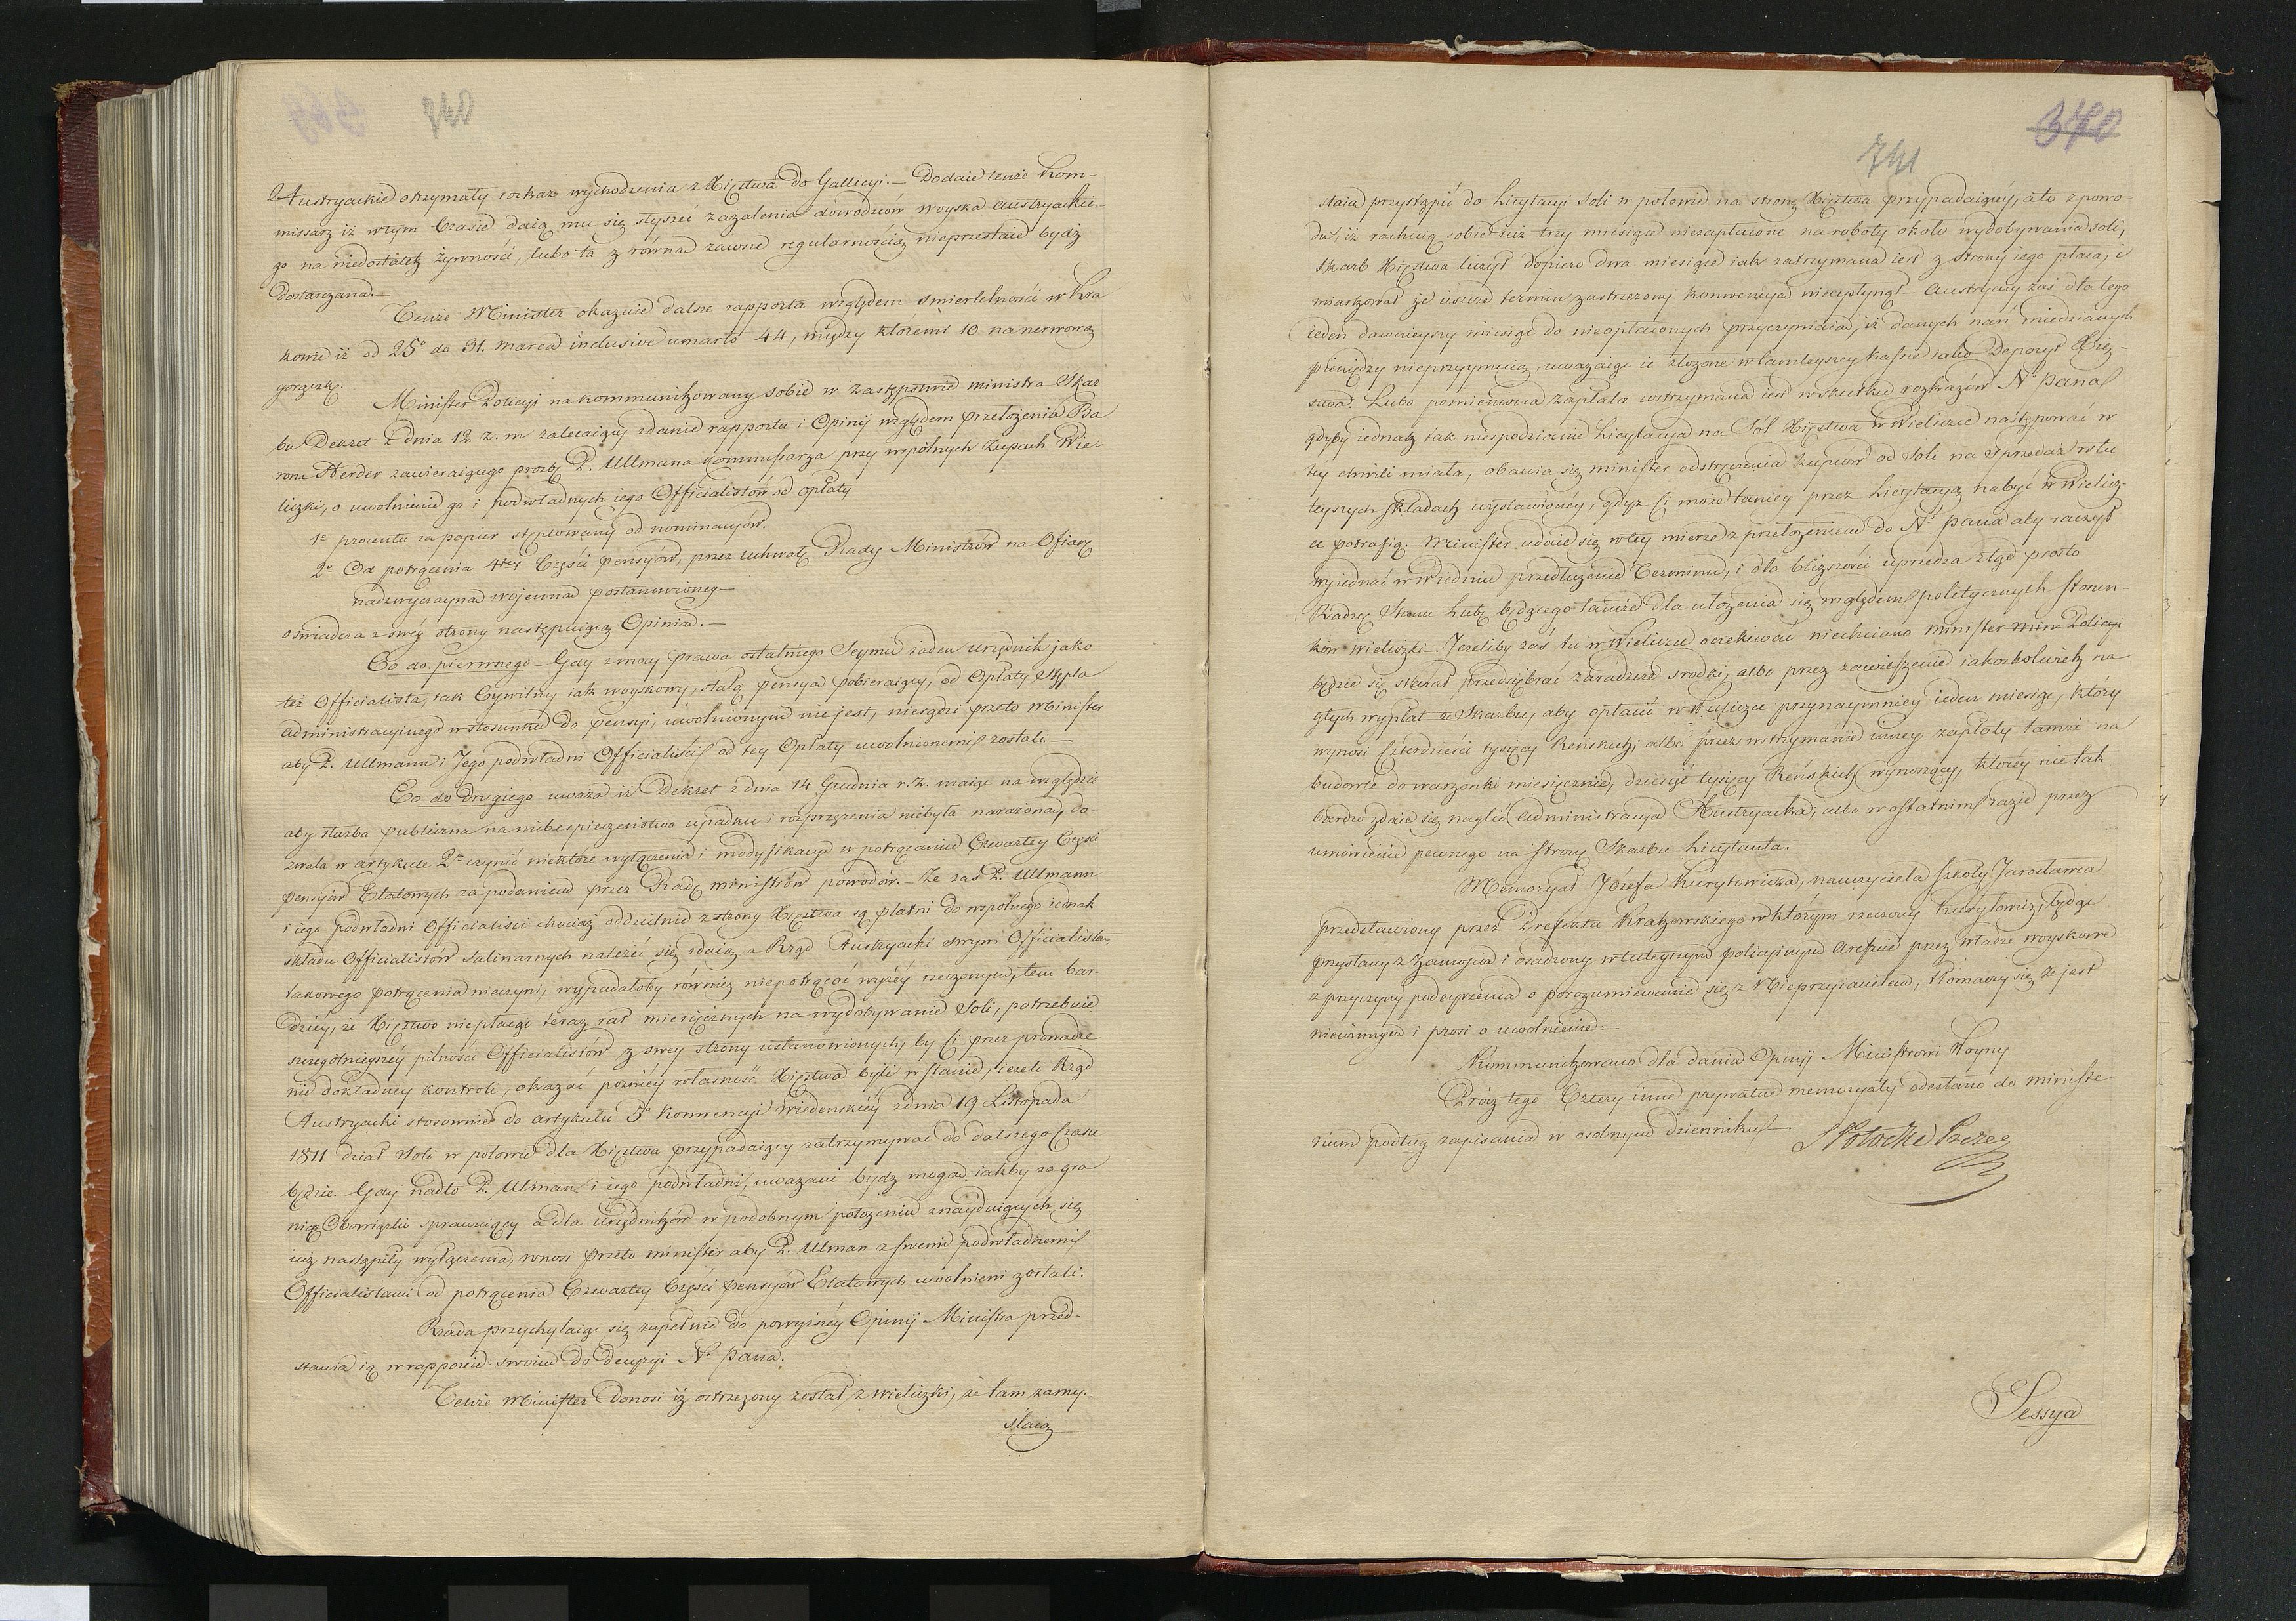 740
Austryackie otrzymały rozkaz wychodzenia z Xięstwa do Gallicyi. — Dodaie tenże Kom-
missarz iż w tym Czasie daią mu się słyszeć zażalenia dowodzców woyska Austryackie-
go na niedostatek żywności, lubo ta z równą zawsze regularnością nieprzestaie bydź
dostarczana. —
Tenże Minister okazuie dalsze rapporta względem śmiertelności w Kra
kowie iż od 25° do 31. marca inclusive umarło 44, między któremi 10 na nerwową
gorączkę.
Minister Policyi na kommunikowany sobie w zastępstwie ministra Skar
bu Dekret z dnia 12. z. m zalecaiący zdanie rapportu i Opinij względem przełożenia Ba
rona Herder zawieraiącego prozbę P. Ullmana Kommissarza przy wspólnych Żupach Wie-
liczki, o uwolnienie go i podwładnych iego Officialistów od opłaty
1° procentu za papier stęplowany od nominacyów.
2° Od potrącenia 4tey Części pensyów, przez uchwałę Rady Ministrów na Ofiarę
nadzwyczayną wojenną postanowioney —
oświadcza z swéy strony następuiącą Opinią. —
Co do pierwszego — Gdy z mocy prawa ostatniego Seymu żaden urzędnik jako
też Officialista, tak Cywilny iak woyskowy, stałą pensyą pobieraiący, od Opłaty Stępla
administracyinego w stosunku do pensyi, uwolnionym nie jest, niesądzi przeto Minister
aby P. Ullmann i Jego podwładni Officialiści od tey Opłaty uwolnionemi zostali. —
Co do drugiego uważa iż Dekret z dnia 14 Grudnia r. z. maiąc na względzie
aby służba publiczna na niebezpieczeństwo upadku i rozprzężenia niebyła narażoną, do-
zwala w artykule 2m czynić niektóre wyłączenia i modyfikacye w potrącaniu Czwartey Części
pensyów Etatowych za podaniem przez Radę ministrów powodów. — Że zaś P. Ullmann
i iego podwładni Officialiści chociaż oddzielnie z strony Xięstwa są płatni do wspólnego iednak
składu Officialistów Salinarnych należeć się zdaią, a Rząd Austryacki swym Officialistom
takowego potrącenia nieczyni, wypadałoby również niepotrącać wyżéy rzeczonym, tem bar-
dziey, że Xięstwo niepłacąc teraz rat miesięcznych na wydobywanie Soli, potrzebuie
szczególnieyszéy pilności Officialistów z swey strony ustanowionych, by Ci przez prowadze
nie dokładney kontroli, okazać pozniéy własność Xięstwa byli w stanie, ieżeli Rząd
Austryacki stosownie do artykułu 5° Konwencyi Wiedenskiéy z dnia 19 Listopada
1811 dział Soli w połowie dla Xięstwa przypadaiący zatrzymywać do dalszego Czasu
będzie. Gdy nadto P. Ulman i iego podwładni, uważani bydz mogą iakby za gra
nicą Obowiązki sprawuiący a dla Urzędników w podobnym położeniu znayduiących się
iuż nastąpiły wyłączenia, wnosi przeto minister aby P. Ulman z swemi podwładnemi
Officialistami od potrącenia Czwartey Części pensyów Etatowych uwolnieni zostali.
Rada przychylaiąc się zupełnie do powyższéy Opinij Ministra przed-
stawia ią w rapporcie swoim do decyzyi N° Pana.
Tenże Minister donosi iż ostrzeżony został z Wieliczki, że tam zamy-
ślaią
370
741
ślaią przystąpić do Licytacyi Soli w połowie na stronę Xięstwa przypadaiącéy, a to z powo-
du, iż rachuią sobie iuż trzy miesiące niezapłacone na roboty około wydobywania soli,
Skarb Xięstwa liczył dopiero dwa miesiące iak zatrzymana iest z strony iego płaca, i
miarkował że ieszcze termin zastrzeżony konwencyą nieupłynął — Austryacy zaś dla tego
ieden dawnieyszy miesiąc do nieopłaconych przyczyniaią, iż danych nań miedzianych
pieniędzy nieprzyymuią, uważaiąc ie złożone w tamteyszey kassie iako Depozyt Xię-
stwa. Lubo pomieniona zapłata wstrzymana iest w skutku rozkazów N° Pana
gdyby iednak tak niespodzianie Licytacya na Sól Xięstwa w Wieliczce następować w
tey chwili miała, obawia się minister odstręczenia kupców od Soli na sprzedaż w tu
teyszych składach wystawionéy, gdyż Ci może taniey przez Licytacyą nabyć w Wielicz-
ce potrafią. Minister udaie się w tey mierze z przełożeniem do N° Pana aby raczył
wyiednać w Wiedniu przedłużenie Terminu, i dla bliższości uprzedza ztąd prosto
Radzcę Stanu Lubę będącego tamże dla ułożenia się względem politycznych stosun-
ków Wieliczki. Jeżeliby zaś tu w Wieliczce oczekiwać niechciano minister Policyi
będzie się starał przedsiębrać zaradcze srodki, albo przez zawieszenie iakichkolwiek na
głych wypłat ze Skarbu, aby opłacić w Wieliczce przynaymniey ieden miesiąc, który
wynosi Czterdzieści tysięcy Reńskich; albo przez wstrzymanie inney zapłaty tamże na
budowle do warzonki miesięcznie, dziesięć tysięcy Reńskich wynoszącey, którey nie tak
bardzo zdaie się naglić administracya Austryacka; albo w ostatnim razie przez
umówienie pewnego na stronę Skarbu Licytanta.
Memoryał Józefa Kuryłowicza, nauczyciela szkoły Jarosławca
przedstawiony przez Prefekta Krakowskiego w którym rzeczony Kuryłowicz, będąc
przysłany z Zamoscia i osadzony w tuteyszym policyinym Areszcie przez władze woyskowe
z przyczyny podeyrzenia o porozumiewanie się z Nieprzyiacielem, tłomaczy się że jest
niewinnym i prosi o uwolnienie. —
Kommunikowano dla dania Opinij Ministrowi Woyny
Prócz tego Cztery inne prywatne memoryały odesłano do ministe
rium podług zapisania w osobnym dzienniku. —
S Potocki Prezes
Sessya